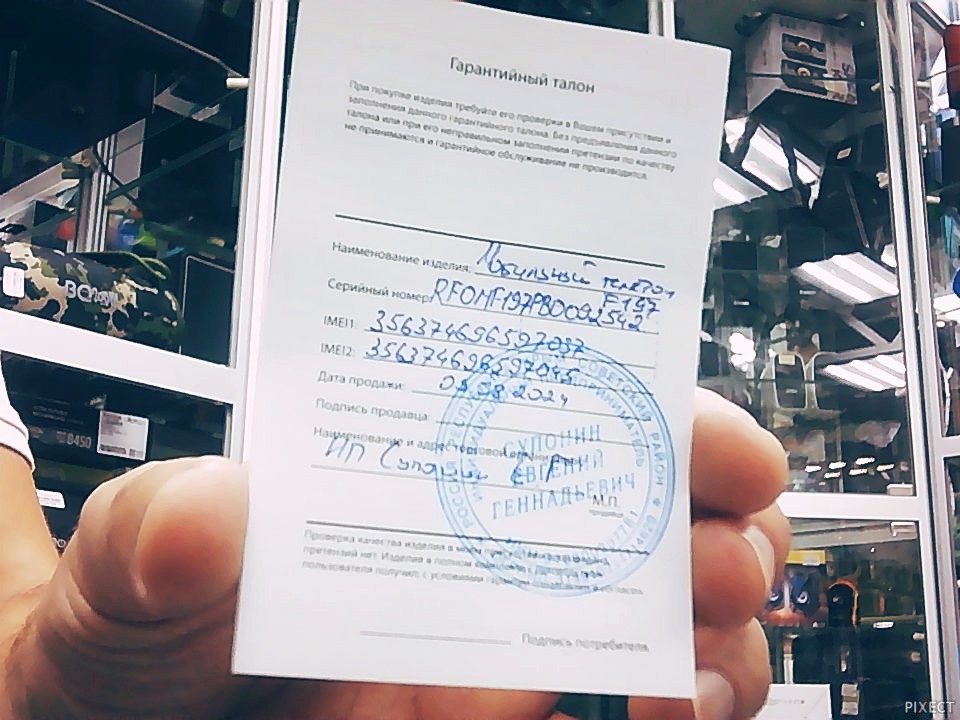 Гарантийный талон
При покупке изделия требуйте его проверки в Вашем присутствии и
заполнения данного гарантийного талона. Без предъявления данного
талона или при его неправильном заполнении претензии по качеству
не принимаются и гарантийное обслуживание не производится.
Наименование изделия: Мобильный телефон
F197
Серийный номер: RFOMF197PBO092542
IMEI1: 356374696597037
IMEI2: 356374696597045
Дата продажи: 09.08.2024
Подпись продавца:
Наименование и адрес торговой организации:
ИП Супонин Е.Г.
СУПОНИН
ЕВГЕНИЙ
ГЕННАДЬЕВИЧ
М.П.
продавца
Проверка качества изделия в моем присутствии
претензий нет. Изделие в полном
пользователя получил, с условиями гарантии согласен.
Подпись потребителя.
B450
PIXECT